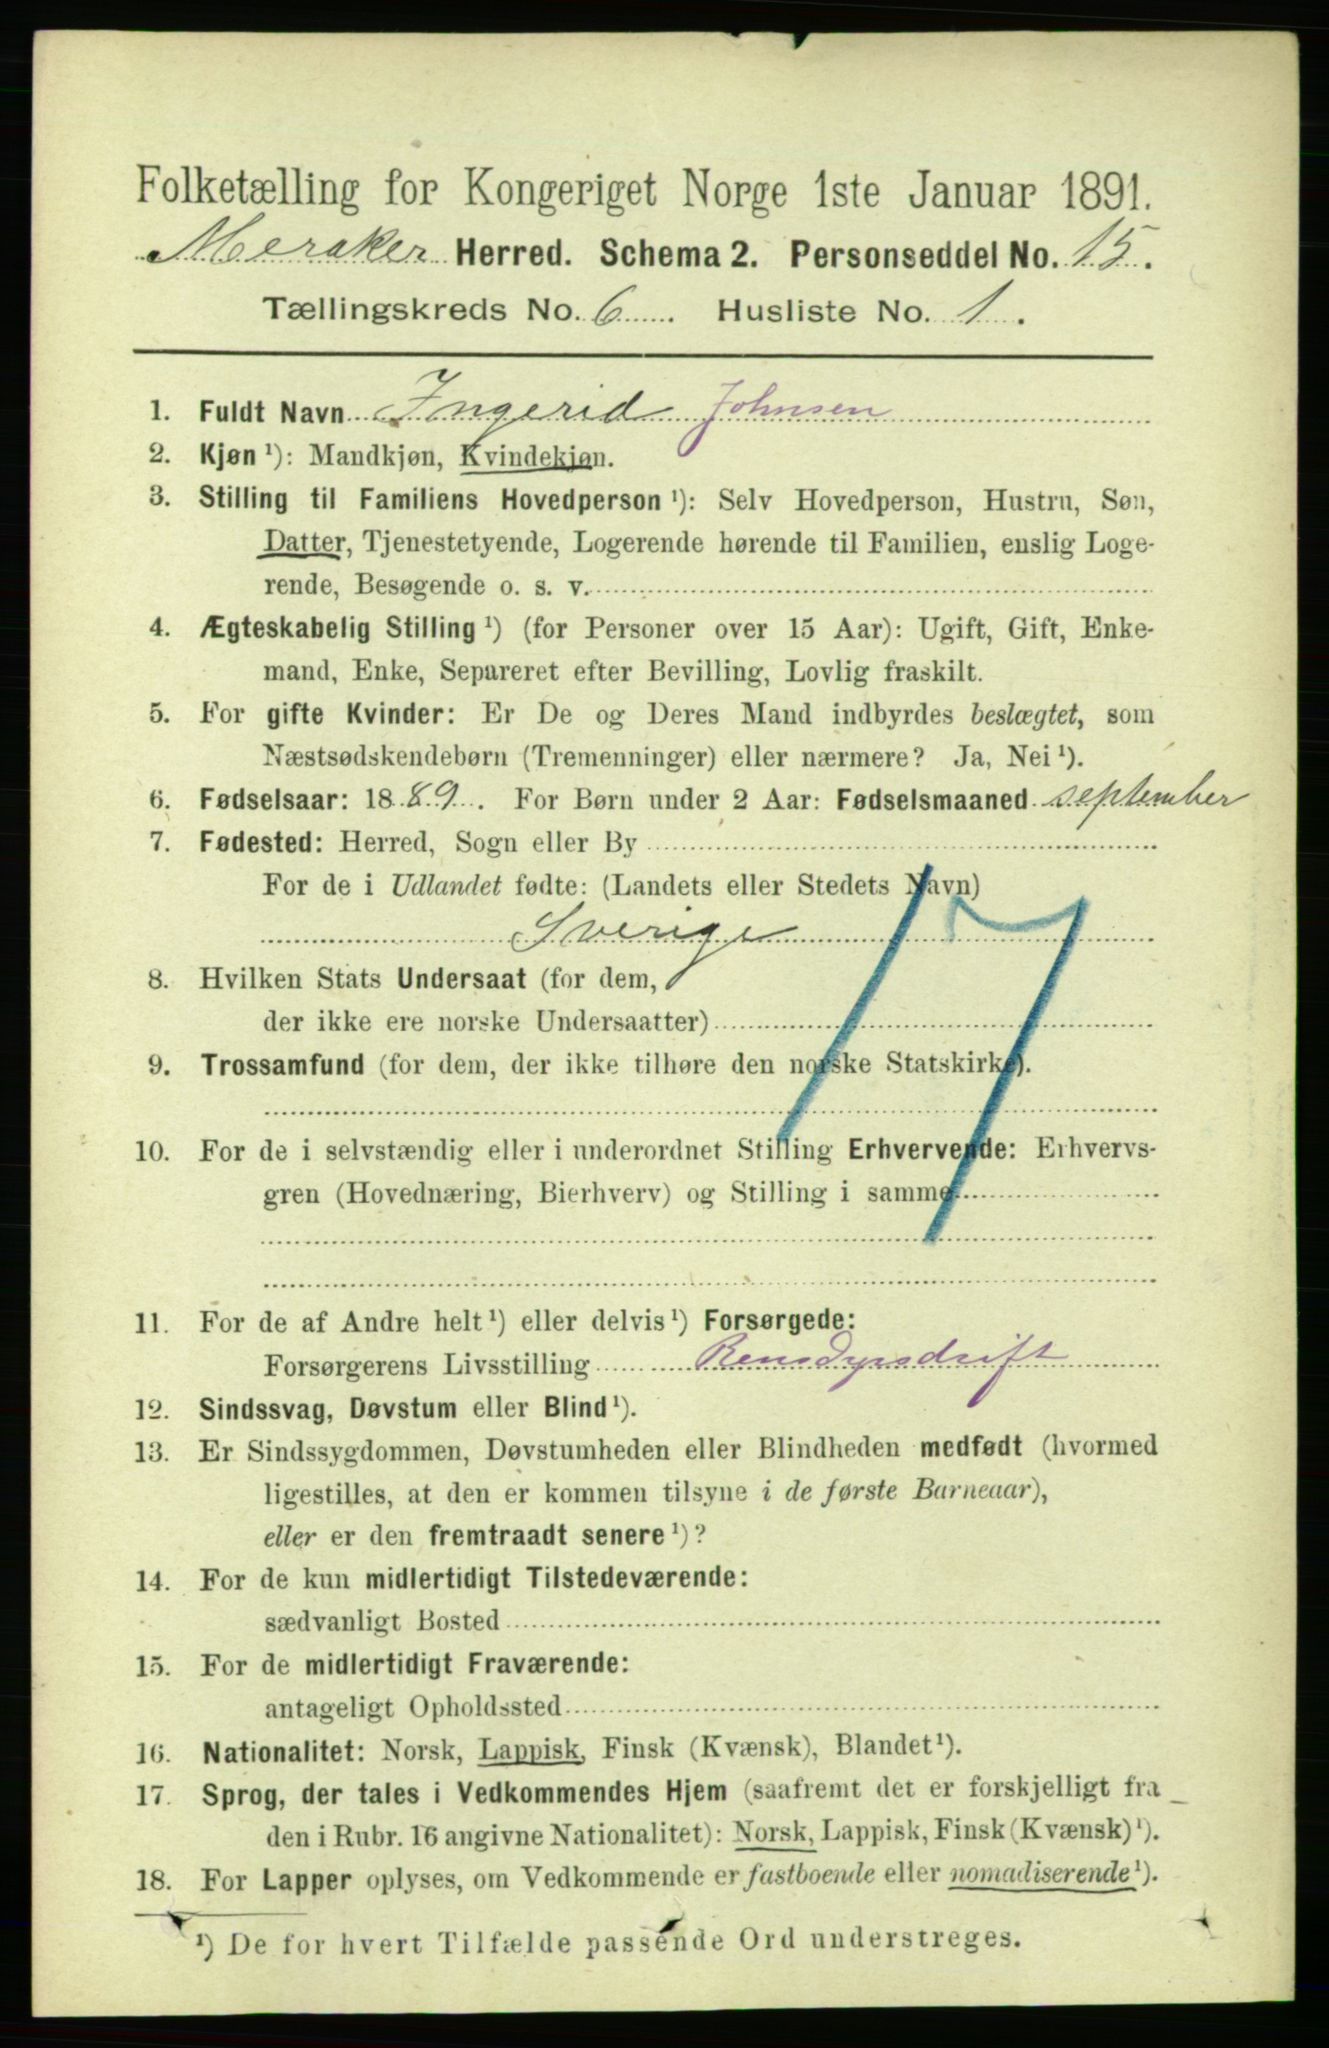 Folketælling for Kongeriget Norge 1ste Januar 1891.
Meraker Herred. Schema 2. Personseddel No. 15.
Tællingskreds No. 6. Husliste No. 1.
1. Fuldt Navn Ingerid Johnsen
2. Kjøn ¹): Mandkjøn, Kvindekjøn.
3. Stilling til Familiens Hovedperson ¹): Selv Hovedperson, Hustru, Søn,
Datter, Tjenestetyende, Logerende hørende til Familien, enslig Loge-
rende, Besøgende o. s. v.
4. Ægteskabelig Stilling ¹) (for Personer over 15 Aar): Ugift, Gift, Enke-
mand, Enke, Separeret efter Bevilling, Lovlig fraskilt.
5. For gifte Kvinder: Er De og Deres Mand indbyrdes beslægtet, som
Næstsødskendebørn (Tremenninger) eller nærmere? Ja, Nei ¹).
6. Fødselsaar: 1889. For Børn under 2 Aar: Fødselsmaaned september
7. Fødested: Herred, Sogn eller By
For de i Udlandet fødte: (Landets eller Stedets Navn)
Sverige
17
8. Hvilken Stats Undersaat (for dem,
der ikke ere norske Undersaatter)
9. Trossamfund (for dem, der ikke tilhøre den norske Statskirke).
10. For de i selvstændig eller i underordnet Stilling Erhvervende: Erhvervs-
gren (Hovednæring, Bierhverv) og Stilling i samme
11. For de af Andre helt ¹) eller delvis ¹) Forsørgede:
Forsørgerens Livsstilling Rensdyrsdrift
12. Sindssvag, Døvstum eller Blind ¹).
13. Er Sindssygdommen, Døvstumheden eller Blindheden medfødt (hvormed
ligestilles, at den er kommen tilsyne i de første Barneaar),
eller er den fremtraadt senere ¹)?
14. For de kun midlertidigt Tilstedeværende:
sædvanligt Bosted
15. For de midlertidigt Fraværende:
antageligt Opholdssted
16. Nationalitet: Norsk, Lappisk, Finsk (Kvænsk), Blandet ¹).
17. Sprog, der tales i Vedkommendes Hjem (saafremt det er forskjelligt fra
den i Rubr. 16 angivne Nationalitet): Norsk, Lappisk, Finsk (Kvænsk) ¹).
18. For Lapper oplyses, om Vedkommende er fastboende eller nomadiserende ¹).
¹) De for hvert Tilfælde passende Ord understreges.